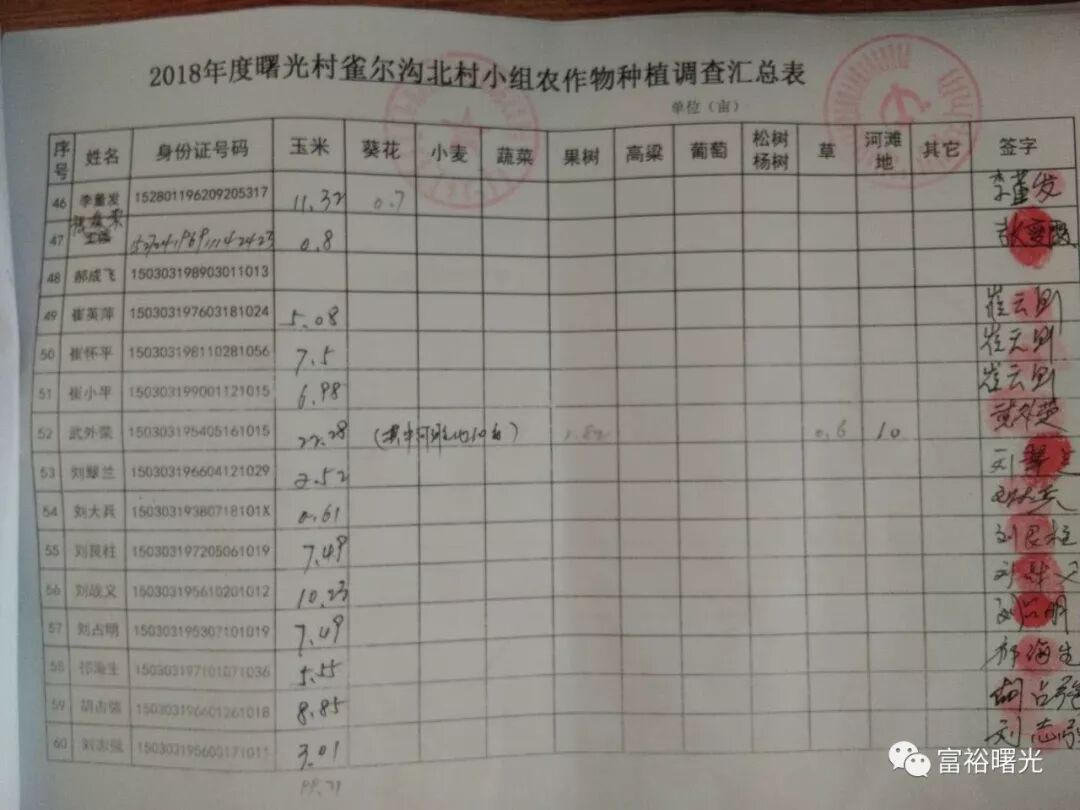 2018年度曙光村雀尔沟北村小组农作物种植调查汇总表
单位（亩）
序号 姓名 身份证号码 玉米 葵花 小麦 蔬菜 果树 高粱 葡萄 松树杨树 草 河滩地 其它 签字
46 李董发 152801196209205317 11.32 0.7 李董发
47 0.8
48 郝成飞 150303198903011013
49 崔英萍 150303197603181024 5.08 崔云则
50 崔怀平 150303198110281056 7.5 崔云则
51 崔小平 150303199001121015 6.98 崔云则
52 武外荣 150303195405161015 22.28 (其中河滩地10亩) 0.6 10
53 刘翠兰 150303196604121029 2.52 刘翠兰
54 刘大兵 15030319380718101X 0.61 刘大兵
55 刘良柱 150303197205061019 7.49 刘良柱
56 刘战义 150303195610201012 10.23 刘战义
57 刘占明 150303195307101019 7.49 刘占明
58 祁海生 150303197101071036 5.55 祁海生
59 胡占强 150303196601261018 8.85 胡占强
60 刘志强 150303195600171011 3.01 刘志强
富裕曙光